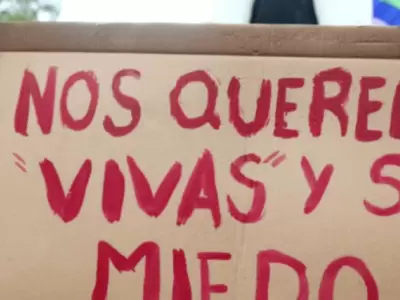 NOS QUERE
"VIVAS" Y S
MIEDO